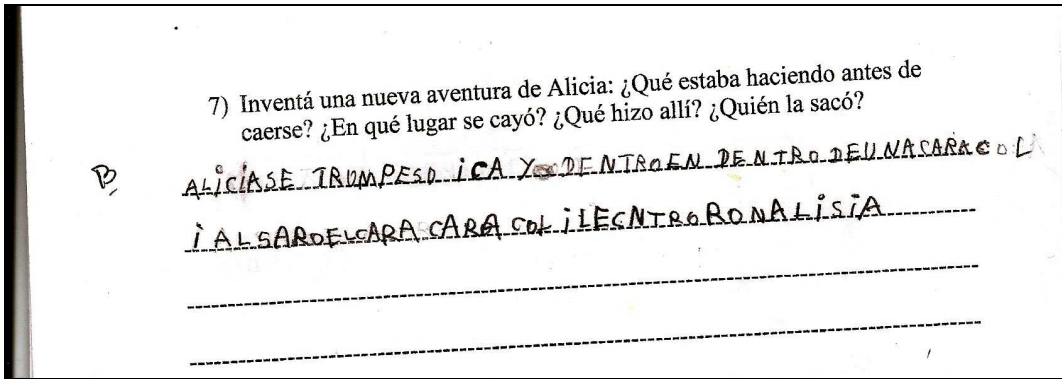 7) Inventá una nueva aventura de Alicia: ¿Qué estaba haciendo antes de
caerse? ¿En qué lugar se cayó? ¿Qué hizo allí? ¿Quién la sacó?
B
ALiCiASE TROMPESO iCA YO DENTROEN DENTRO DEUNACARACOL
i ALSAROELCARA CARA COL iLECNTRORONALiSiA